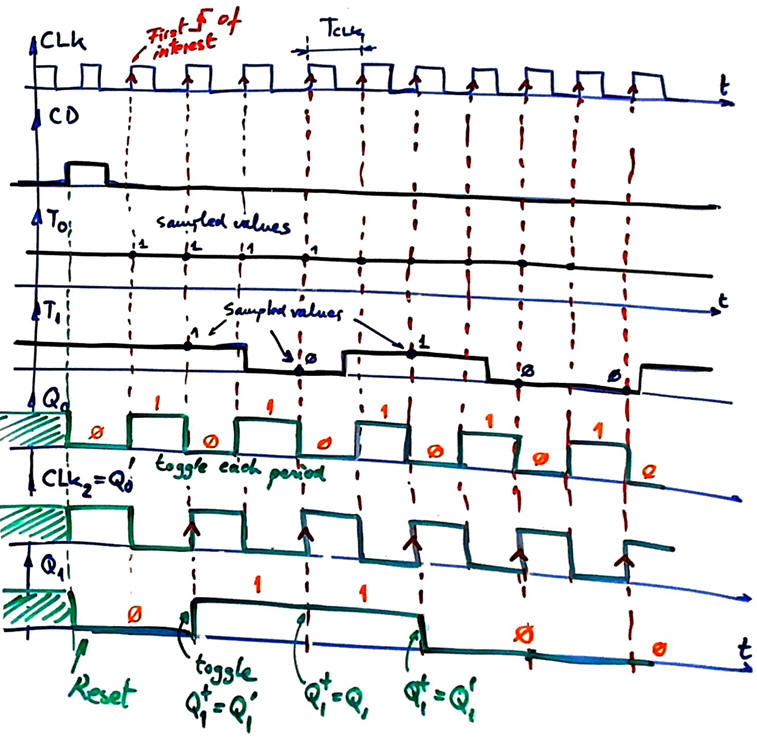 First ↑ of
interest
CLK
TCLK
t
CD
T₀
sampled values
1 1 1 1
t
T₁
Sampled values
1 Ø 1 Ø Ø
Q₀
Ø 1 Ø 1 Ø 1 Ø 1 Ø 1 0
toggle each period
CLK₂=Q₀'
Q₁
Ø 1 1 Ø 0
t
Reset
toggle
Q₁⁺=Q₁'
Q₁⁺=Q₁
Q₁⁺=Q₁'